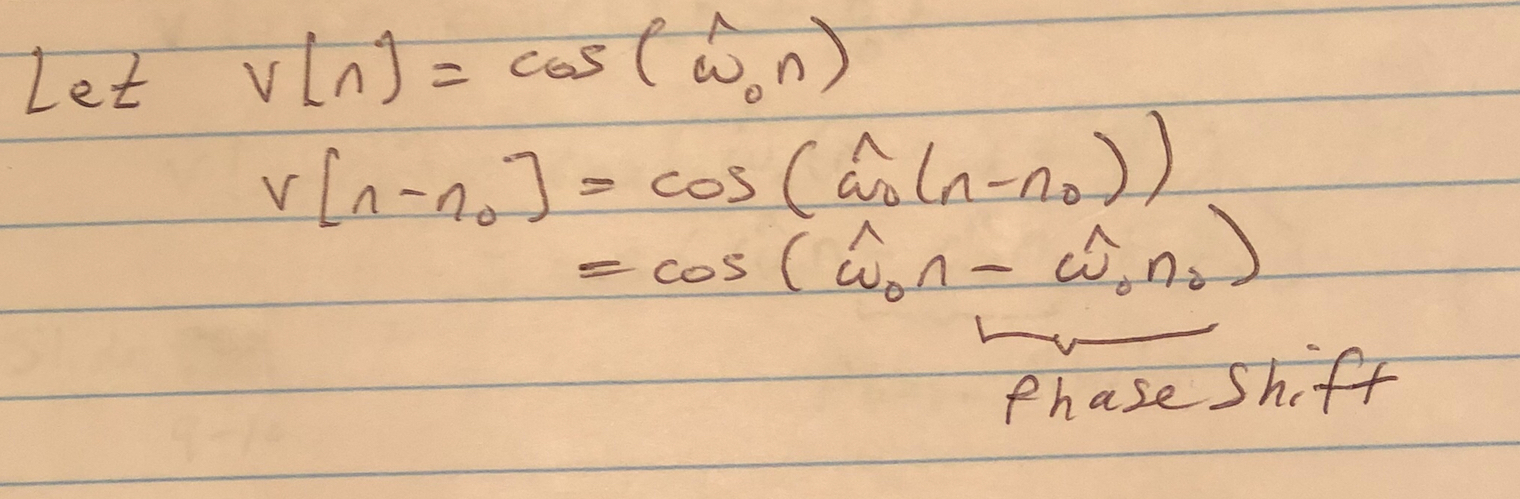 Let v[n] = cos(ω̂₀n)
v[n-n₀] = cos(ω̂₀(n-n₀))
= cos(ω̂₀n - ω̂₀n₀)
Phase Shift